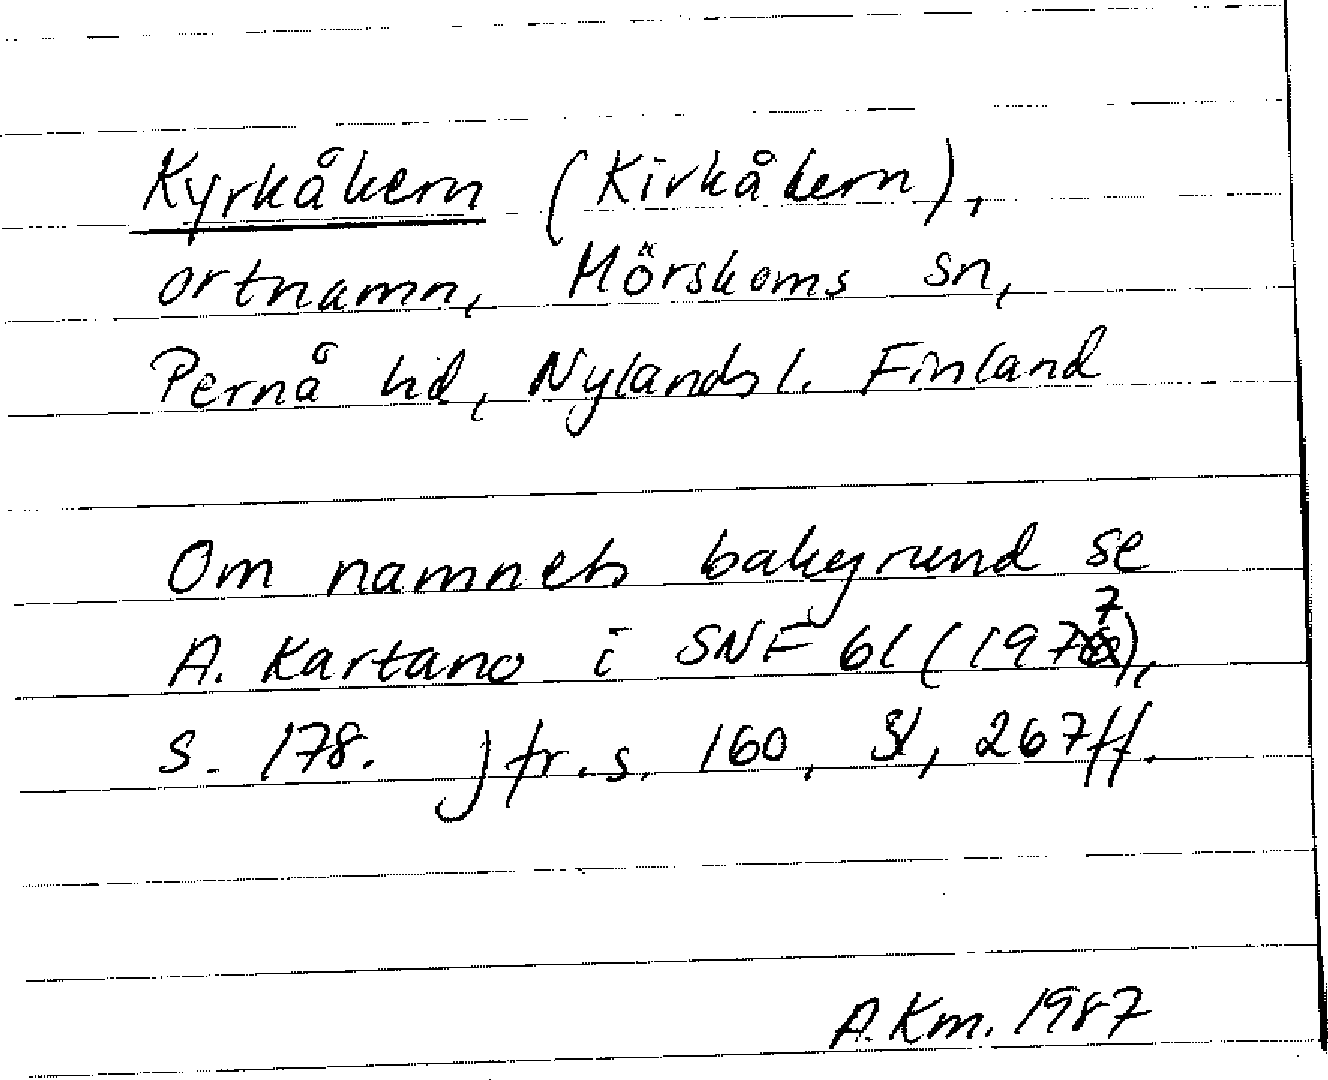 Kyrkåkern (Kirkåkern),
ortnamn, Mörskoms sn,
Pernå hd, Nylands l. Finland
Om namnets bakgrund se
A. Kartano i SNF 61 (1977),
s. 178. jfr. s. 160, 267 ff.
A.Km. 1987